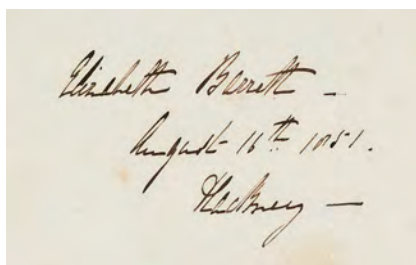 Elizabeth Barrett –
August 16th 1851.
Hackney –